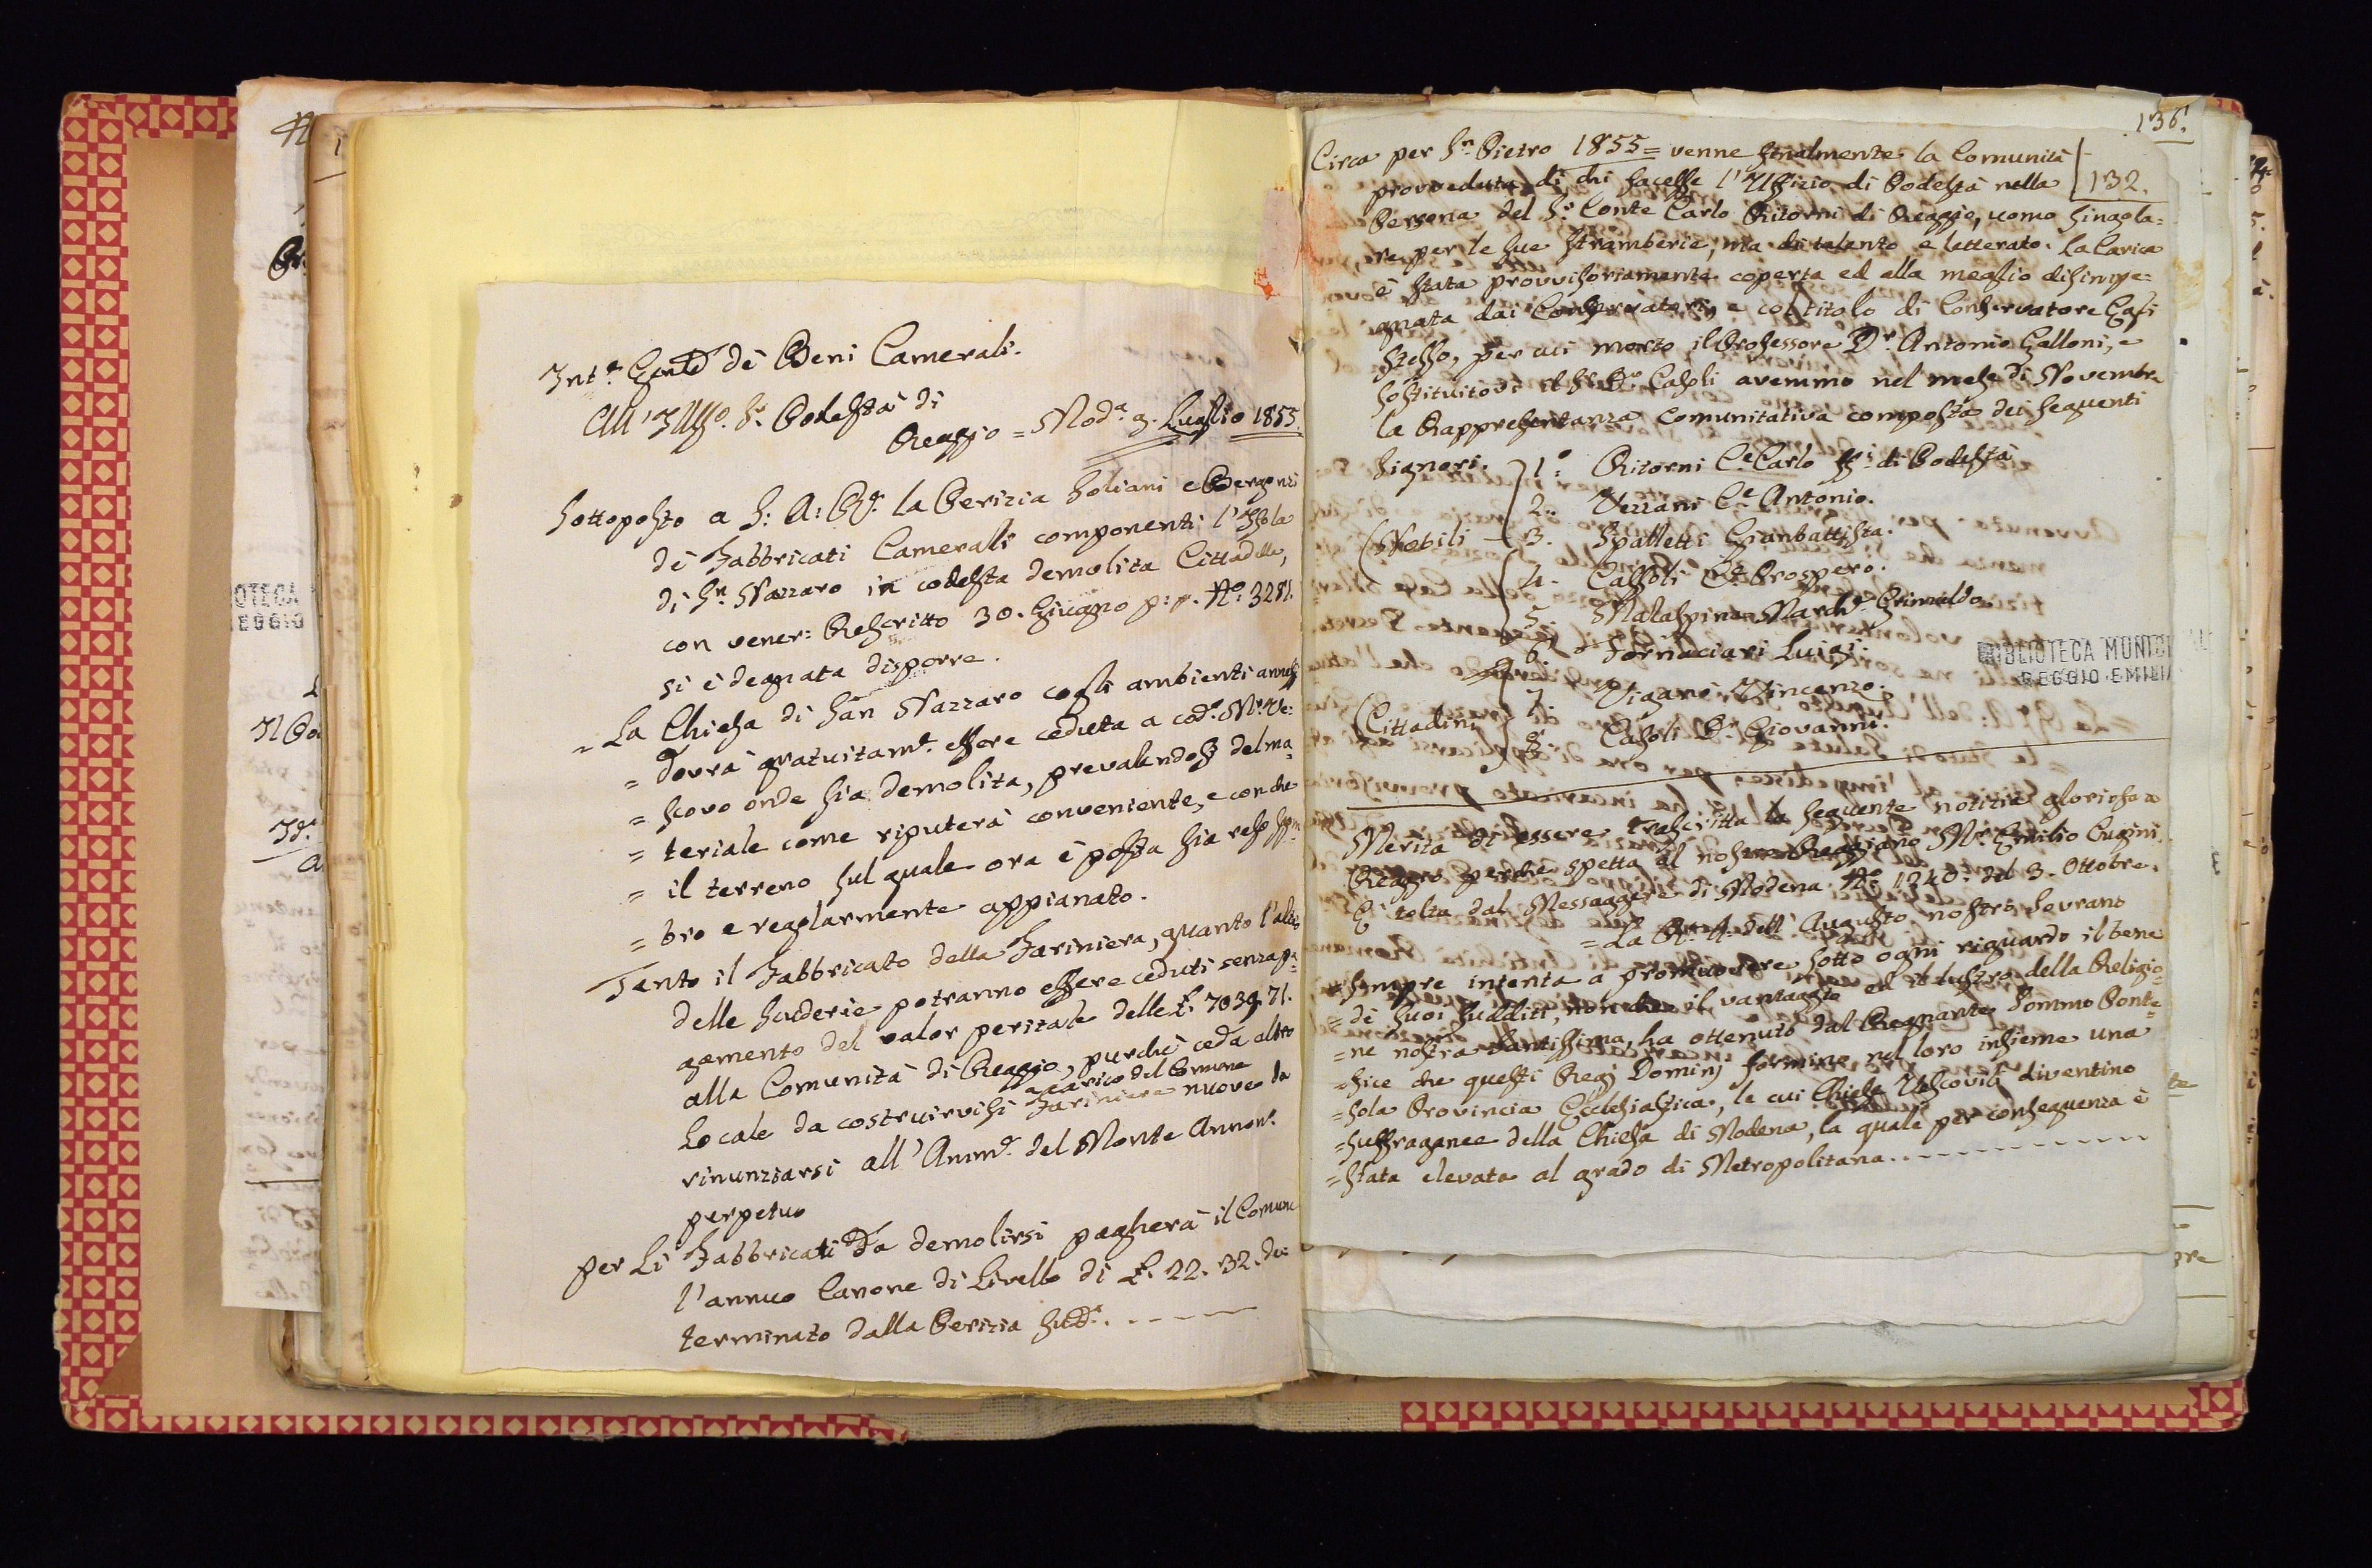 Int.ª Gen.le di Beni Camerali.
All'Illmo. Sr. Podestà di
Reggio = Mod.ª 9. Luglio 1855.
Sottoposto a S: A: R.e la Perizia Soliani e Bergonzi
di Fabbricati Camerali componenti l'Isola
di Sn. Nazzaro in codesta demolita Cittadella,
con vener: Rescritto 30. Giugno p: p. No. 3281.
si è degnata disporre.
= La Chiesa di San Nazzaro cogli ambienti annessi
= dovrà gratuitam.e essere ceduta a cod.o Mr. Ve:
= scovo onde sia demolita, prevalendosi del ma=
= teriale come riputerà conveniente, e con che
= il terreno sul quale ora è posta sia reso
= bro e regolarmente appianato.
Tanto il Fabbricato della Fariniera, quanto l'altro
delle Scuderie potranno essere ceduti senza pa=
gamento del valor peritale delle £. 7039.71.
alla Comunità di Reggio, purchè ceda altro
a carico del Comune
Locale da costruirvisi Fariniere nuove da
rinunziarsi all'Amm.e del Monte Annon.
perpetuo
Per Li Fabbricati Da demolirsi pagherà il Comune
l'annuo Canone di Livello di £. 22. 32. de:
terminato dalla Perizia sudd.ª
136.
132.
Circa per Sn. Pietro 1855 = venne finalmente la Comunità
provveduta di chi facesse l'Uffizio di Podestà nella
Persona del Sr. Conte Carlo Ritorni di Reggio, uomo singola=
re per le sue stramberie, ma di talento e letterato. La Carica
è stata provvisoriamente coperta ed alla meglio disimpe=
gnata dai Conservatori, e col titolo di Conservatore
stesso, per cui morto il Professore Dr. Antonio Galloni, e
sostituitovi il Sr. Dr. Casoli avemmo nel mese di Novembre
la Rappresentanza Comunitativa composta dei seguenti
Signori.
1o Ritorni C.e Carlo ff.i di Podestà
2. Vezzani C.e Antonio.
(Nobili - 3. Spalletti Gianbattista.
4. Cassoli C.e Prospero.
5. Malaspina March.e Grimaldo
6. Fornaciari Luigi.
7. Viganò Vincenzo.
(Cittadini 8. Casoli Dr. Giovanni.
BIBLIOTECA MUNICIPALE
REGGIO EMILIA
Merita di essere trascritta la seguente notizia gloriosa a
Reggio perchè spetta al nostro Reggiano Mr. Emilio Cugini.
È tolta dal Messaggere di Modena No. 1240. del 3. Ottobre.
= La R. A. dell'Augusto nostro Sovrano
= sempre intenta a promuovere sotto ogni riguardo il bene
= de' suoi sudditi, non che il vantaggio ed il lustro della Religio=
= ne nostra Santissima, ha ottenuto dal Regnante Sommo Ponte=
= fice che questi Regj Dominj formino nel loro insieme una
= sola Provincia Ecclesiastica, le cui Chiese Vescovili diventino
= suffraganee della Chiesa di Modena, la quale per conseguenza è
= stata elevata al grado di Metropolitana